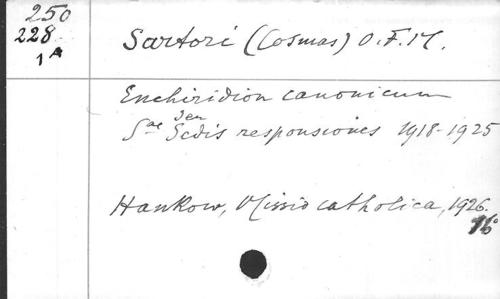 250
228
1A
Sartori (Cosmas) O.F.M.
Enchiridion canonicum
seu
Sae Sedis responsiones 1918-1925
Hankow, Missio catholica, 1926.
16°